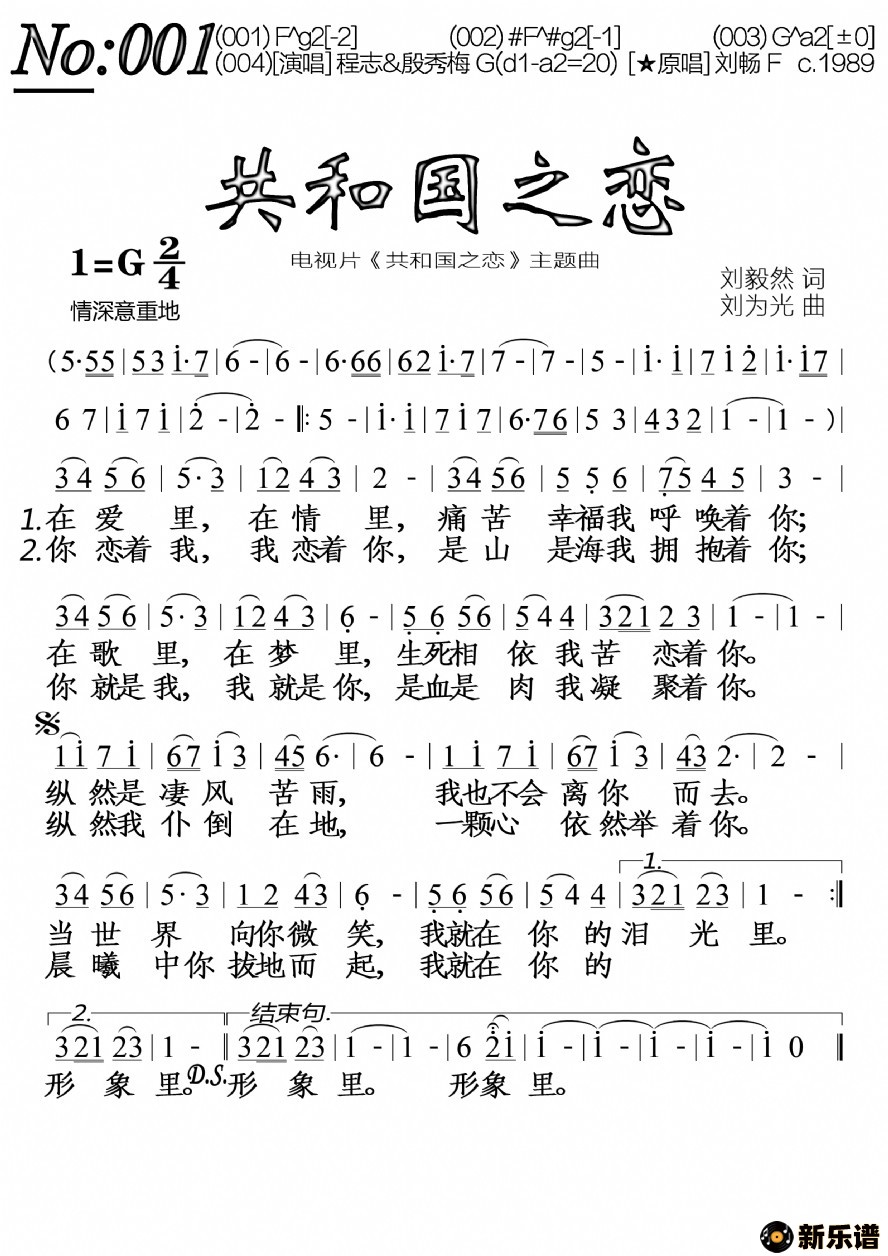 No:001
(001) F^g2[-2] (002) #F^#g2[-1] (003) G^a2[±0]
(004)[演唱] 程志&殷秀梅 G(d1-a2=20) [★原唱] 刘畅 F c.1989
共和国之恋
1=G 2/4
电视片《共和国之恋》主题曲
情深意重地
刘毅然 词
刘为光 曲
（5·55|53 i·7|6 -|6 -|6·66|62 i·7|7 -|7 -|5 -|i· i|7 i 2̇|i· i7|
6 7|i 7 i|2̇ -|2̇ -‖:5 -|i· i|7 i 7|6·76|5 3|432|1 -|1 -）|
34 56|5·3|12 43|2 -|34 56|5 5̣ 6|7̣5 4 5|3 -|
1.在 爱 里, 在 情 里, 痛 苦 幸福我 呼 唤着 你;
2.你 恋着 我, 我 恋着 你, 是 山 是海我 拥 抱着 你;
34 56|5·3|12 43|6̣ -|5̣ 6̣ 56|5 44|321 2 3|1 -|1 -|
在 歌 里, 在 梦 里, 生死相 依 我 苦 恋着 你。
你 就是 我, 我 就是 你, 是血是 肉 我 凝 聚着 你。
1i 7 i|67 i 3|45 6·|6 -|1 i 7 i|67 i 3|43 2·|2 -|
纵 然是 凄 风 苦 雨, 我也不会 离 你 而 去。
纵 然我 仆 倒 在 地, 一颗心 依 然 举 着 你。
34 56|5·3|1 2 43|6̣ -|5̣ 6̣ 56|5 4 4|1.321 23|1 - :‖
当 世 界 向你微 笑, 我就在 你 的 泪 光 里。
晨 曦 中你 拔地而 起, 我就在 你 的
2. 结束句.
321 23|1 - ‖321 23|1 -|1 -|6 2̇i|i -|i -|i -|i -|i 0‖
形 象 里。D.S.形 象 里。 形象 里。
新乐谱